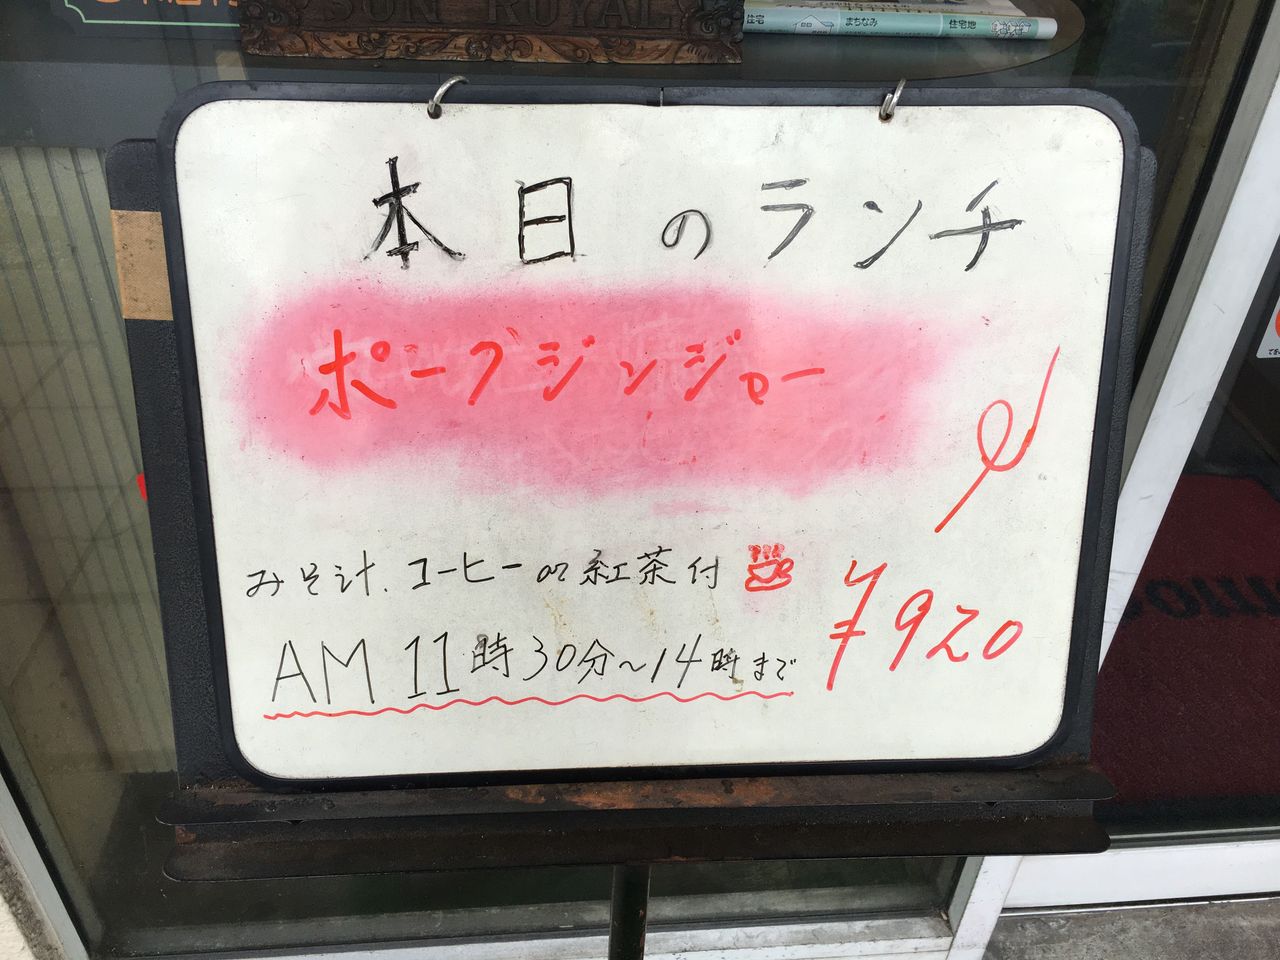 SUN ROYAL
住宅 まちなみ 住宅地
本日のランチ
ポークジンジャー
みそ汁、コーヒーor紅茶付
¥920
AM 11時30分〜14時まで